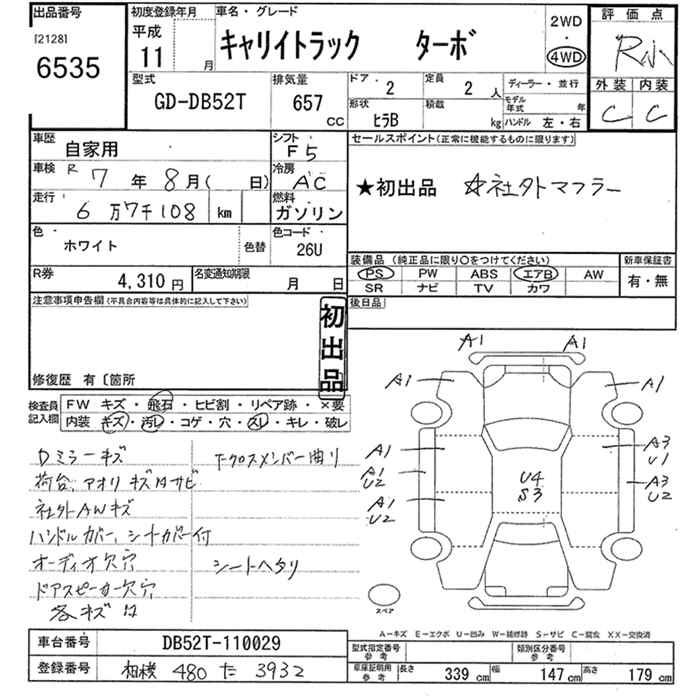 出品番号 初度登録年月 車名・グレード 2WD 評価点
[2128] 平成 キャリイトラック ターボ ・ R小
6535 11 月 4WD 外装 内装
型式 排気量 ドア・ 2 定員 2 人 ディーラー・並行 C C
GD-DB52T 657 CC 形状 ヒラB 積載 kg モデル年式 年
ハンドル 左・右
車歴 自家用 シフト F5 セールスポイント(正常に機能するものに限ります)
車検 R 7 年 8 月 ( 日) 冷房 AC ★初出品 ☆社外マフラー
走行 6 万7千108 km 燃料 ガソリン
色 ホワイト 色替 色コード 26U 装備品 (純正品に限り○をつけてください) 新車保証書
PS PW ABS エアB AW 有・無
R券 4,310 円 名変通知期限 月 日 SR ナビ TV カワ
注意事項申告欄(不具合内容等は具体的に記入して下さい) 後日品
初出品
修復歴 有〔箇所
検査員記入欄 FW キズ・飛石・ヒビ割・リペア跡・×要
内装 キズ・汚レ・コゲ・穴・スレ・キレ・破レ
Dミラーキズ Fクロスメンバー曲り
荷台、アオリキズ凹サビ
社外AWキズ
ハンドルカバー、シートカバー付
オーディオ欠穴 シートヘタリ
ドアスピーカー欠穴
各キズ凹
A1 A1
A1 A1
A1 A3
U1
A1 A3
U2 U2
A1
U2
U4
S3
スペア
A－キズ E－エクボ U－凹み W－補修跡 S－サビ C－腐食 XX－交換済
車台番号 DB52T-110029 型式指定番号 参考 類別区分番号 参考
登録番号 相模 480 た 3932 車庫証明用 参考 長さ 339 cm 幅 147 cm 高さ 179 cm